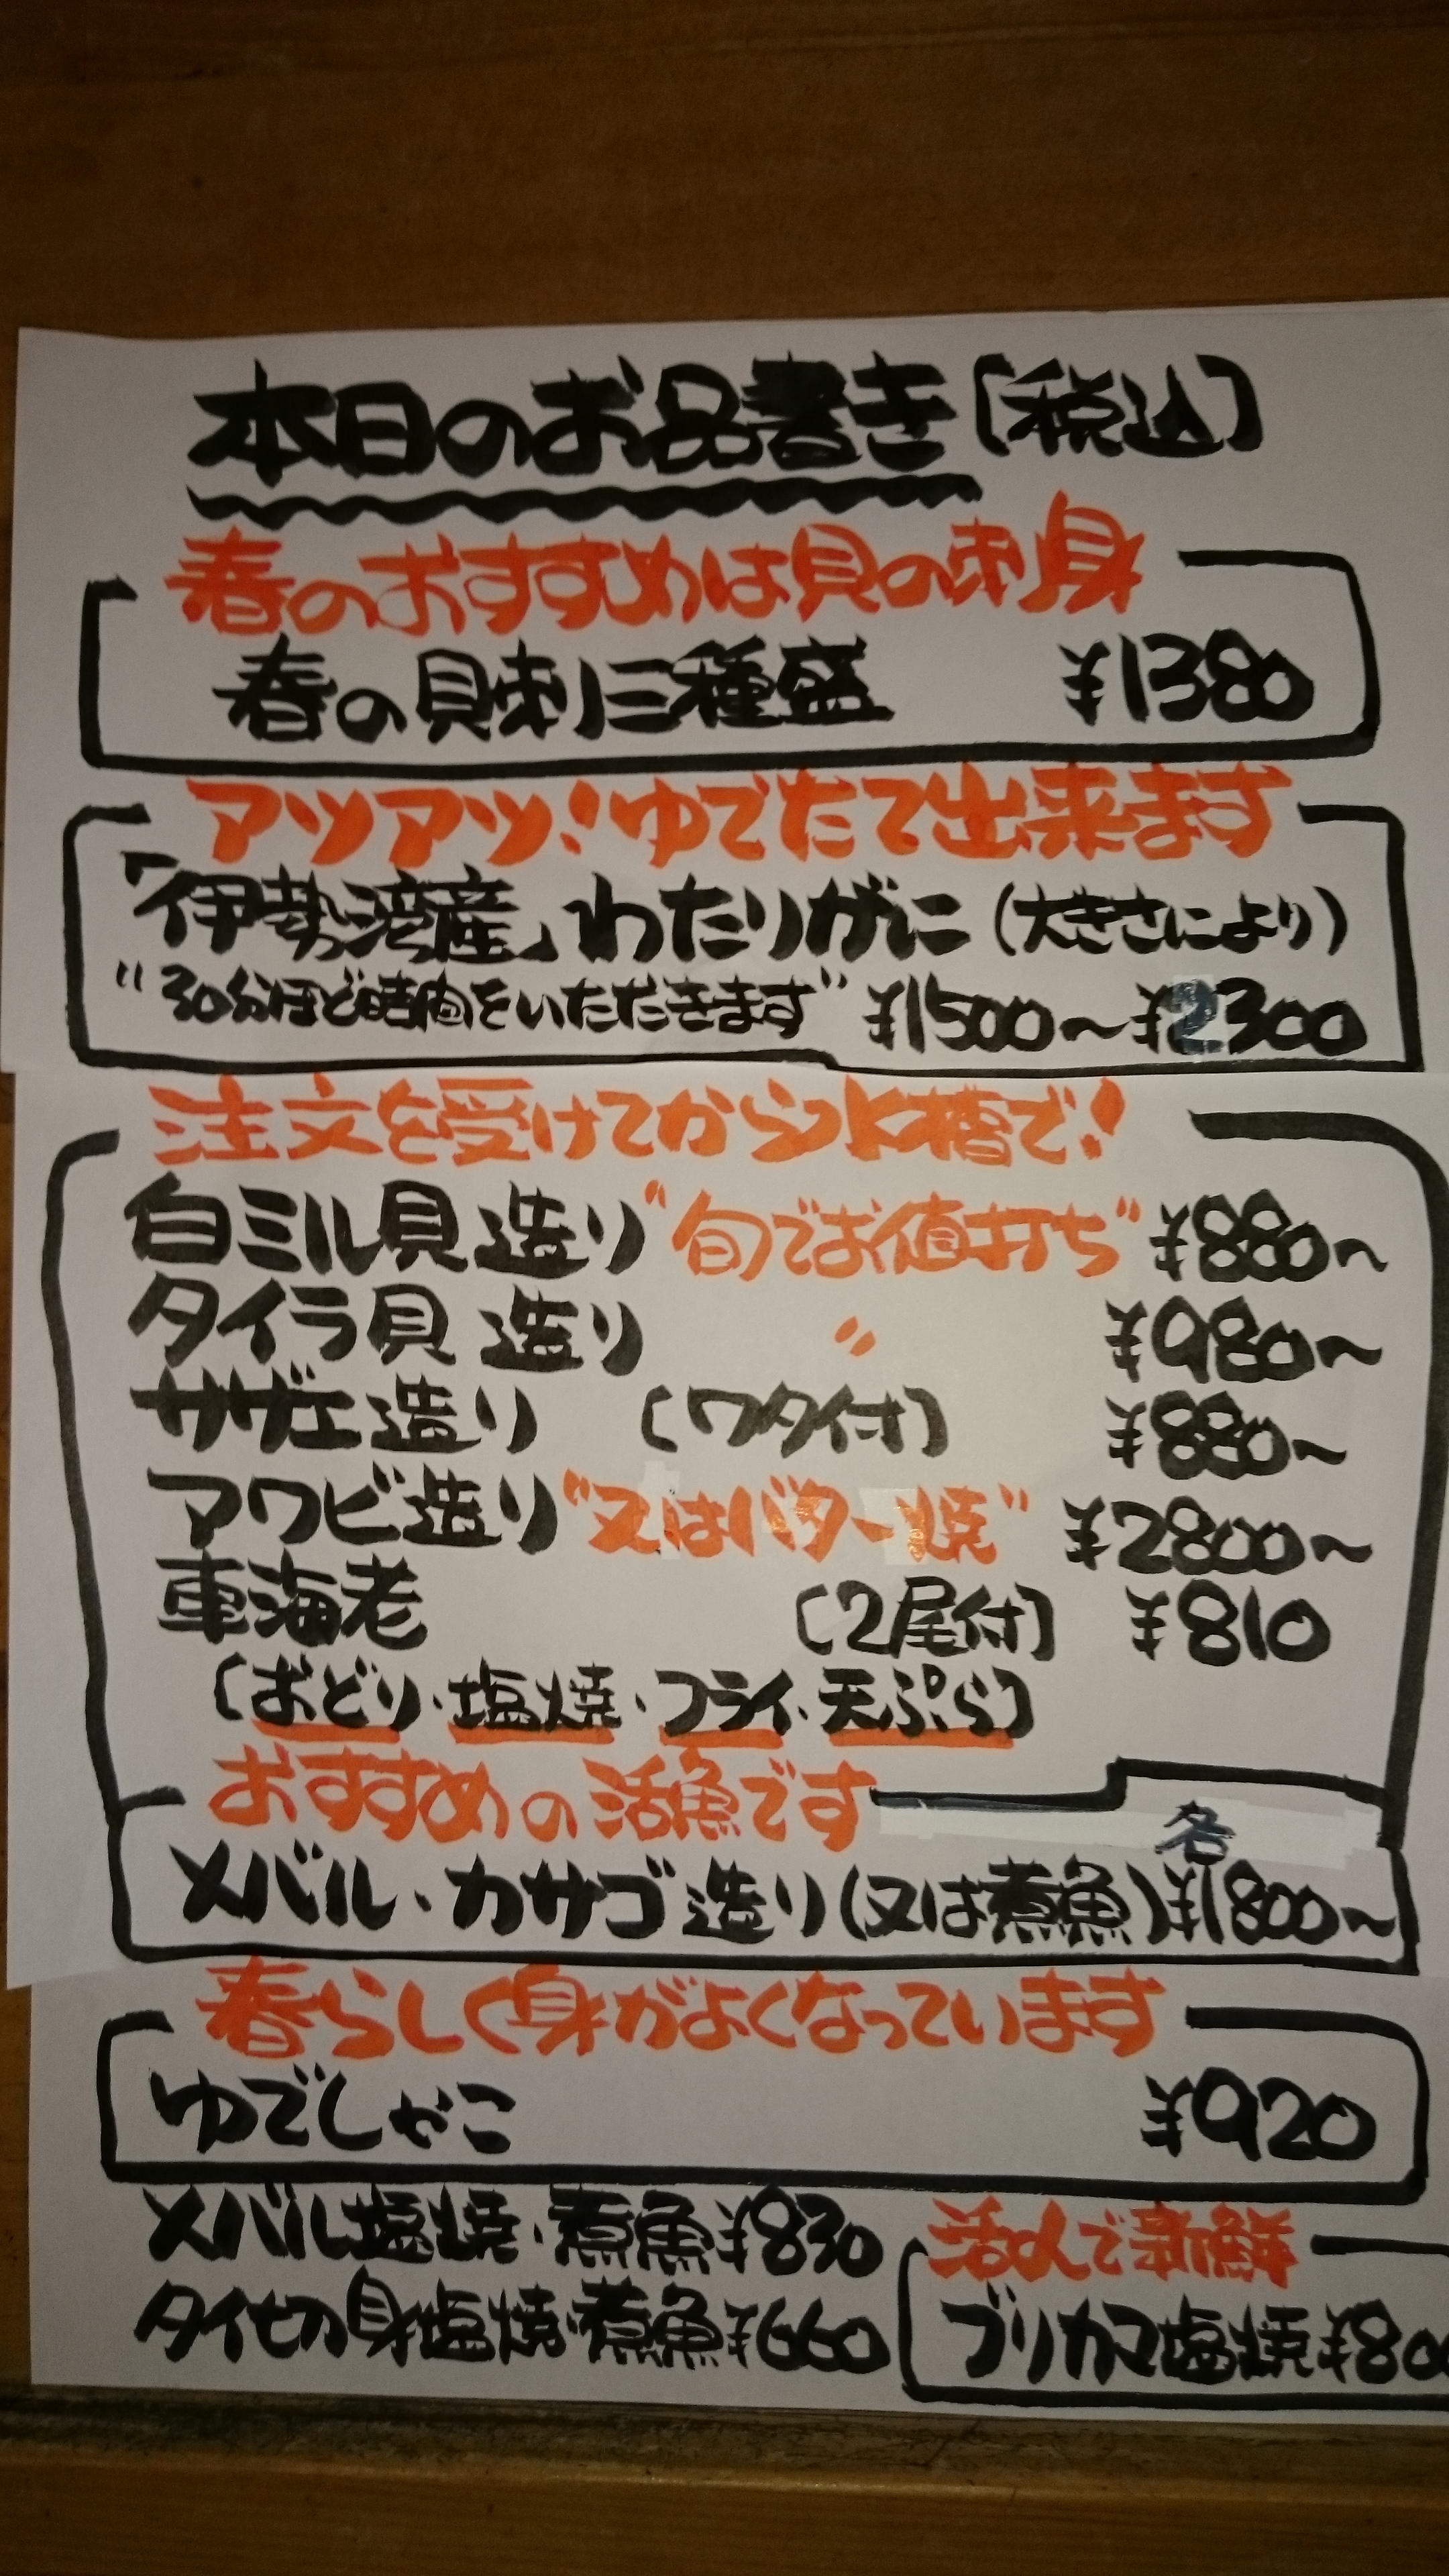 本日のお品書き〔税込〕
春のおすすめは貝の刺身
春の貝刺三種盛 ¥1380
アツアツ!ゆでたて出来ます
「伊勢湾産」わたりがに(大きさにより)
"30分ほど時間をいただきます" ¥1500〜¥2300
注文を受けてから水槽で!
白ミル貝造り"旬でお値打ち" ¥880〜
タイラ貝造り 〃 ¥980〜
サザエ造り〔ワタ付〕 ¥880〜
アワビ造り"又はバター焼" ¥2800〜
車海老〔2尾付〕 ¥810
〔おどり・塩焼・フライ・天ぷら〕
おすすめの活魚です
各
メバル・カサゴ造り(又は煮魚)¥1800〜
春らしく身がよくなっています
ゆでしゃこ ¥920
メバル塩焼・煮魚¥830
タイ切り身塩焼・煮魚¥660
活〆で新鮮
ブリカマ塩焼¥80